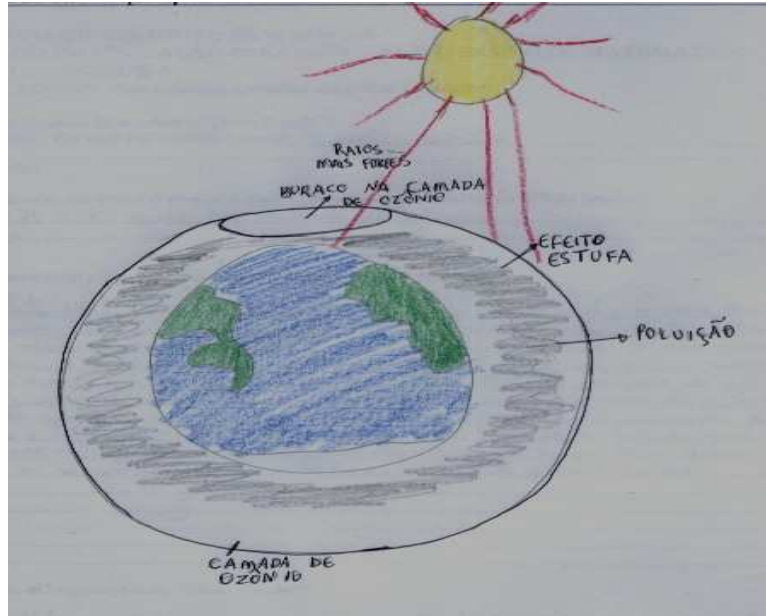 RAIOS
MAIS FORTES
BURACO NA CAMADA
DE OZÔNIO
EFEITO
ESTUFA
POLUIÇÃO
CAMADA DE
OZÔNIO